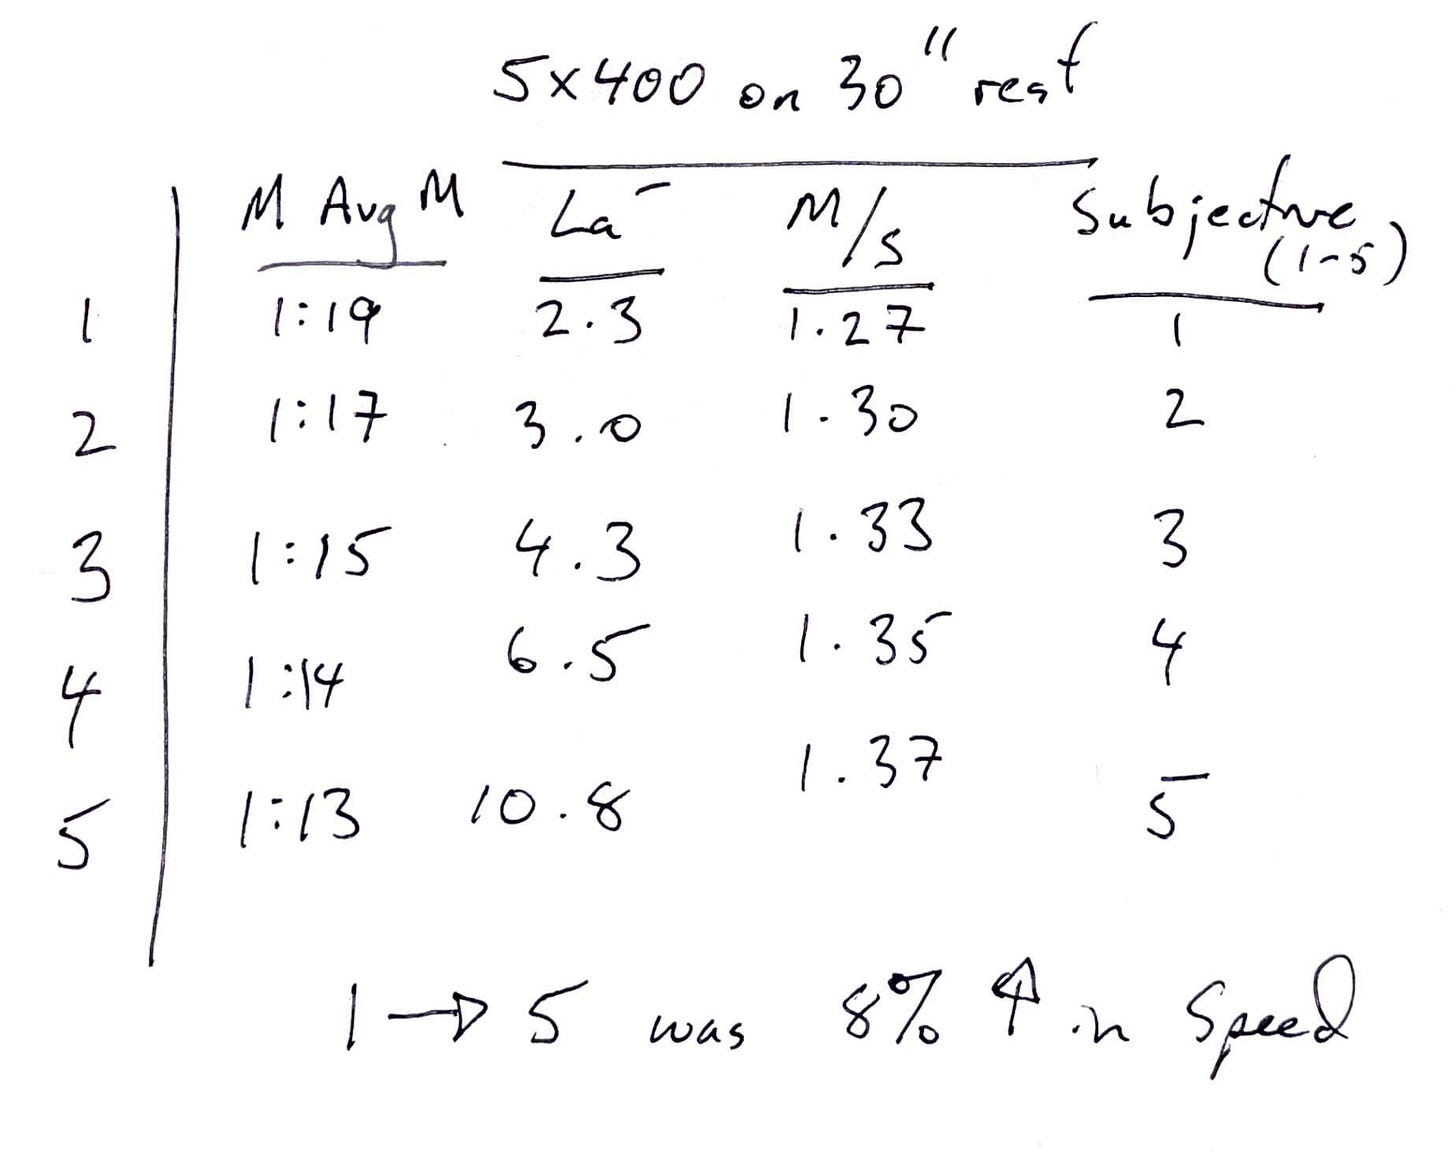 5x400 on 30" rest
M Avg M La⁻ M/s Subjective (1-5)
1 1:19 2.3 1.27 1
2 1:17 3.0 1.30 2
3 1:15 4.3 1.33 3
4 1:14 6.5 1.35 4
5 1:13 10.8 1.37 5
1 → 5 was 8% ↑ in Speed